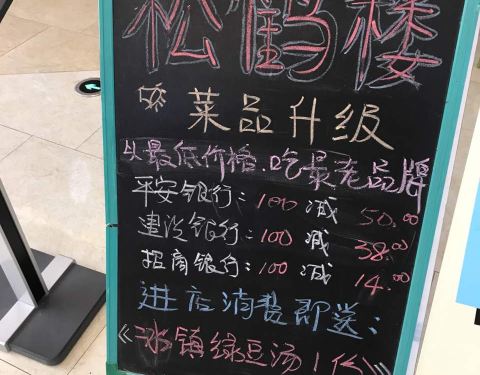 松鹤楼
菜品升级
以最低价格.吃最老品牌
平安银行:100减50.00
建设银行:100减38.00
招商银行:100减14.00
进店消费即送:
《冰镇绿豆汤1份》